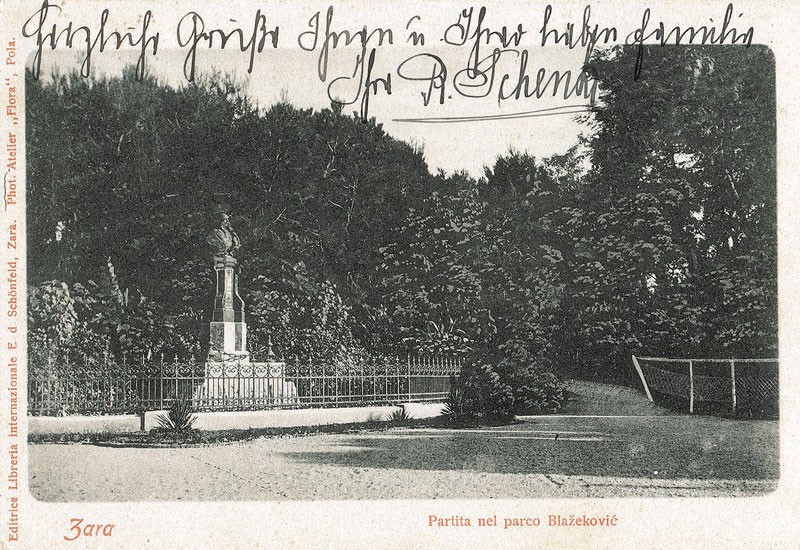 Herzliche Grüße Ihnen ü Ihrer lieben Familie
Ihr R. Schenck
Editrice Libreria internazionale E. d Schönfeld, Zara. Phot. Atelier „Flora“, Pola.
Zara
Partita nel parco Blažeković